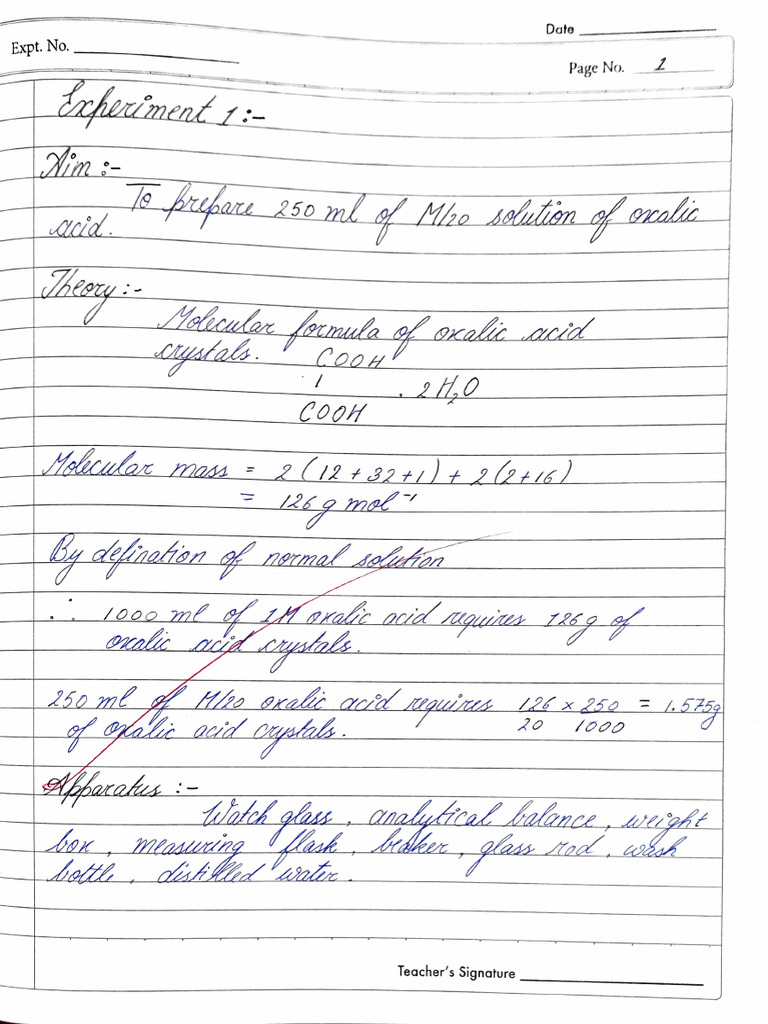 Date
Expt. No.
Page No. 1
Experiment 1 :-
Aim :-
To prepare 250 ml of M/20 solution of oxalic
acid.
Theory :-
Molecular formula of oxalic acid
crystals.
COOH
| . 2H₂O
COOH
Molecular mass = 2 (12 + 32 + 1) + 2(2+16)
= 126 g mol⁻¹
By defination of normal solution
∴ 1000 ml of 1M oxalic acid requires 126g of
oxalic acid crystals.
250 ml of M/20 oxalic acid requires 126 × 250 = 1.575g
20 1000
of oxalic acid crystals.
Apparatus :-
Watch glass, analytical balance, weight
box, measuring flask, beaker, glass rod, wash
bottle, distilled water.
Teacher's Signature